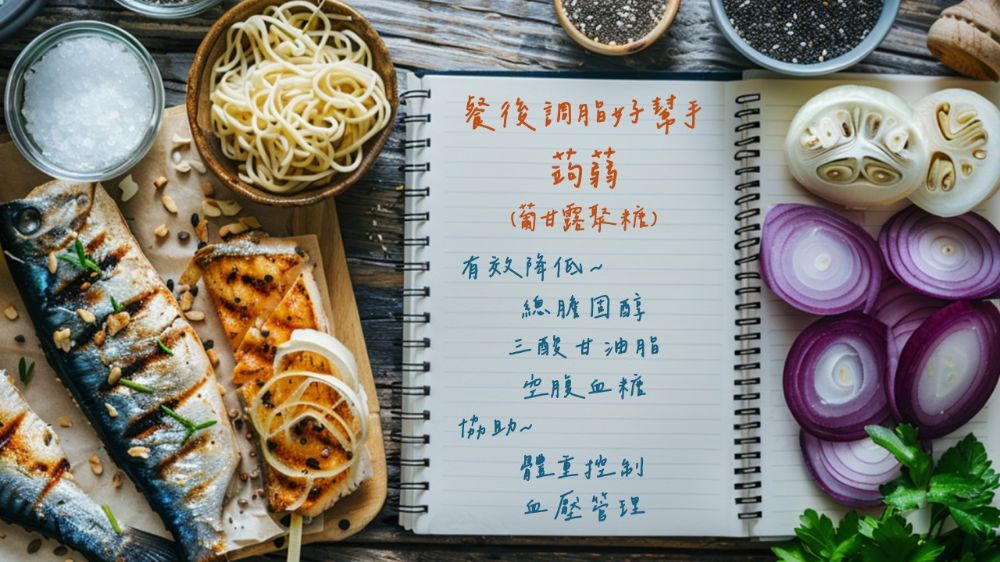 餐後調脂好幫手
蒟蒻
(葡甘露聚糖)
有效降低~
總膽固醇
三酸甘油脂
空腹血糖
協助~
體重控制
血壓管理